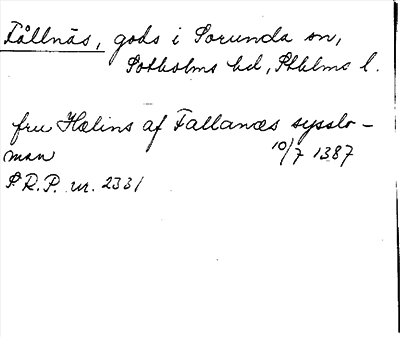 Fållnäs, gods i Sorunda sn,
Sotholms hd, Sthlms l.
fru Hælins af Fallanæs sysslo-
man 10/7 1387
SRP. nr. 2331